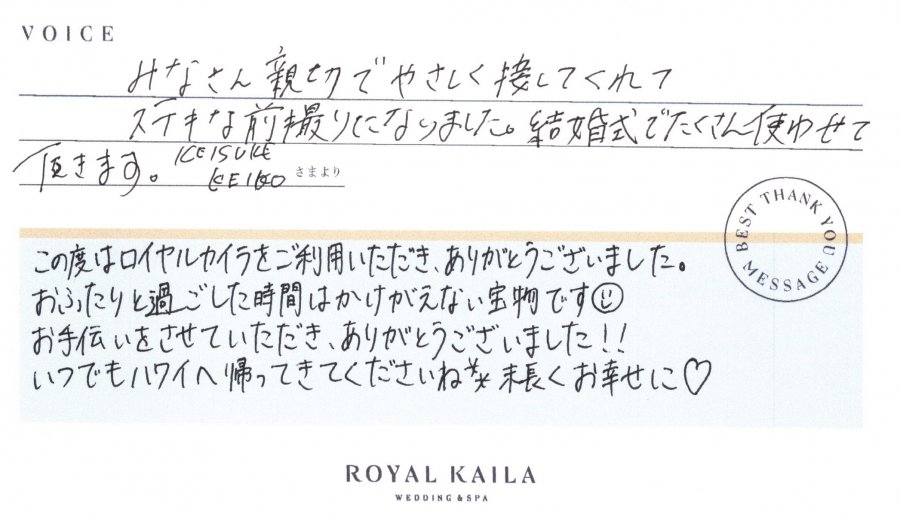 VOICE
みなさん親切でやさしく接してくれて
ステキな前撮りになりました。結婚式でたくさん使わせて
頂きます。 KEISUKE
KEIKO さまより
BEST THANK YOU MESSAGE
この度はロイヤルカイラをご利用いただき、ありがとうございました。
おふたりと過ごした時間はかけがえない宝物です☺
お手伝いをさせていただき、ありがとうございました!!
いつでもハワイへ帰ってきてくださいね** 末長くお幸せに♡
ROYAL KAILA
WEDDING & SPA